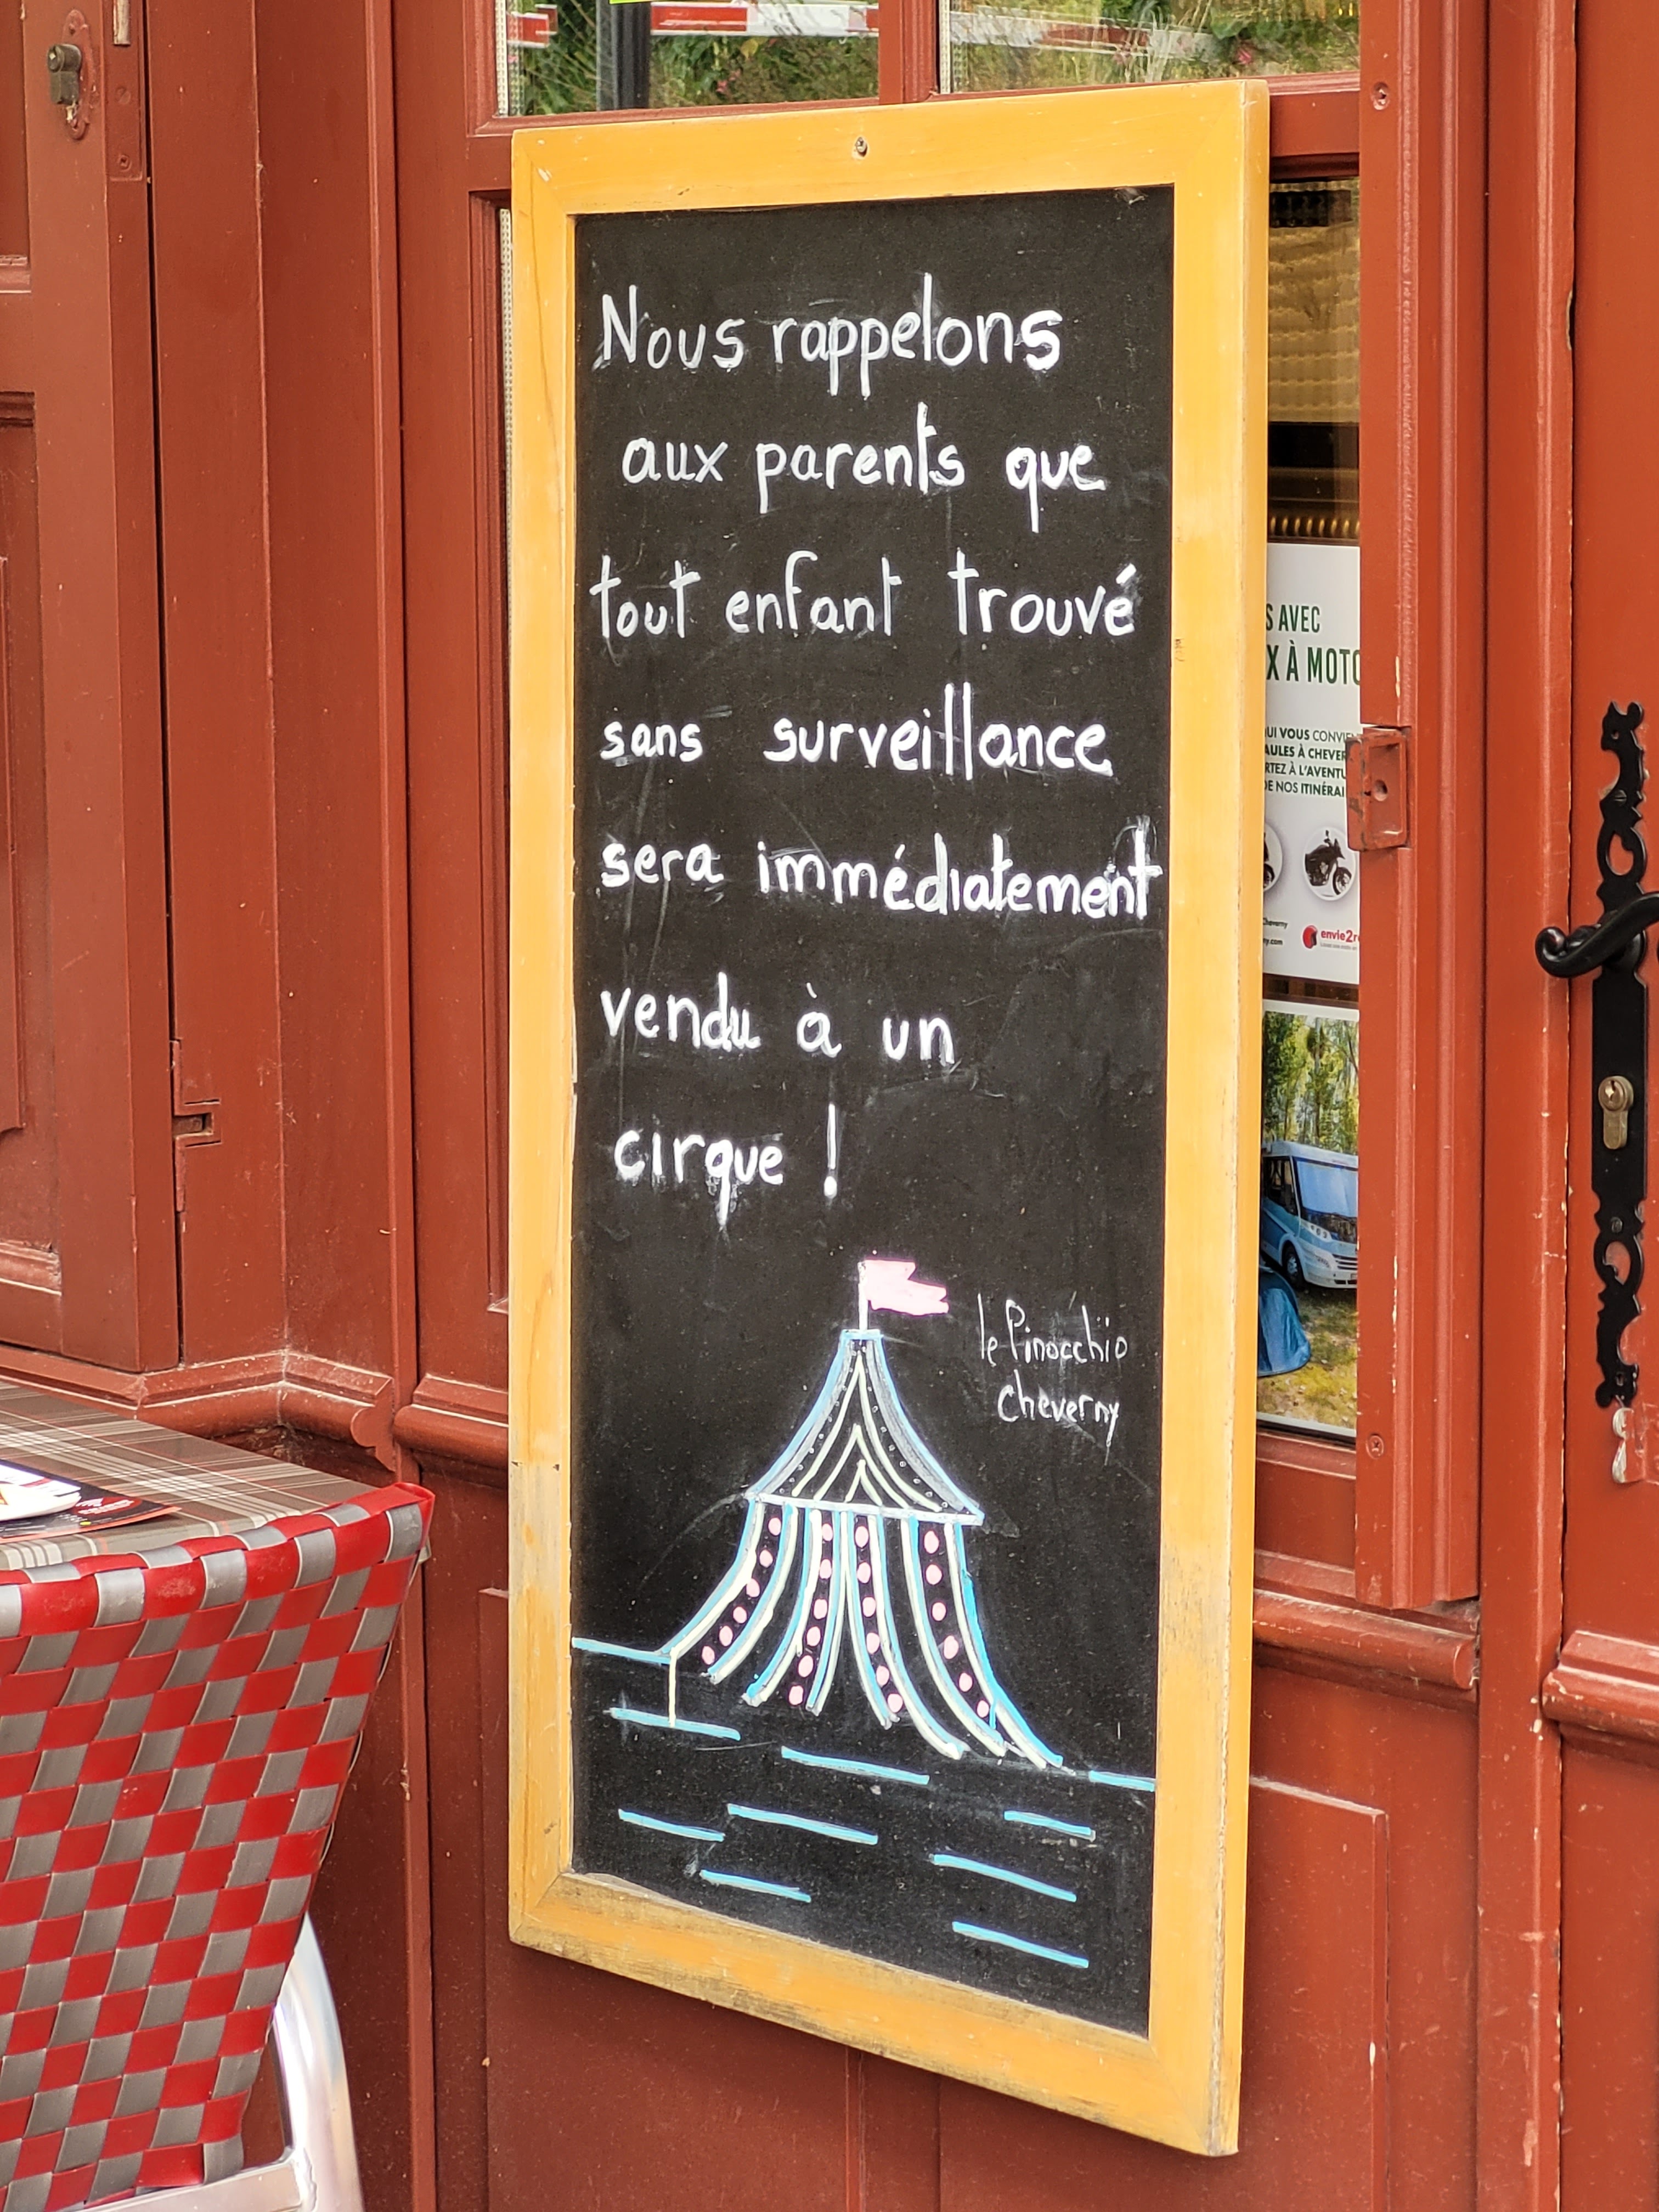 Nous rappelons
aux parents que
tout enfant trouvé
sans surveillance
sera immédiatement
vendu à un
cirque !
le Pinocchio
Cheverny
S AVEC
X À MOTO
UI VOUS CONVIEN
AULES À CHEVER
RTEZ À L'AVENTU
DE NOS ITINÉRAI
Cheverny
ny.com
envie2r